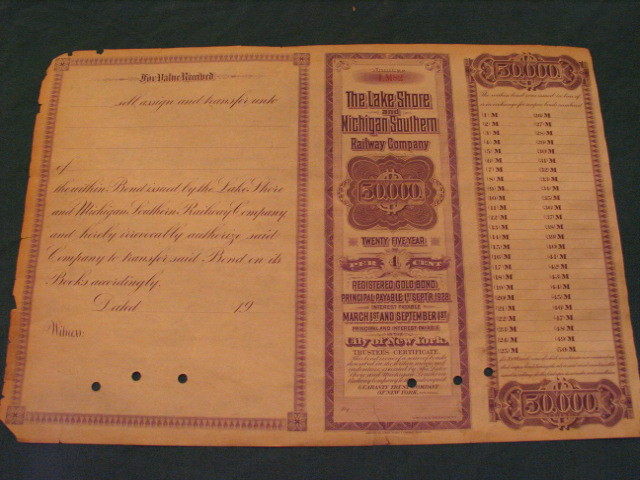 For Value Received
sell assign and transfer unto
of
the within Bond issued by the Lake Shore
and Michigan Southern Railway Company
and hereby irrevocably authorize said
Company to transfer said Bond on its
Books accordingly.
Dated 19
Witness
Number
The Lake Shore
AND
Michigan Southern
Railway Company
50,000.
TWENTY FIVE YEAR
4
PER CENT
REGISTERED GOLD BOND.
PRINCIPAL PAYABLE 1ST SEPTR. 1928
INTEREST PAYABLE
MARCH 1ST AND SEPTEMBER 1ST
PRINCIPAL AND INTEREST PAYABLE
IN THE
City of New York.
TRUSTEE'S CERTIFICATE.
GUARANTY TRUST COMPANY
OF NEW YORK
By
50,000.
1 M 26 M
2 M 27 M
3 M 28 M
4 M 29 M
5 M 30 M
6 M 31 M
7 M 32 M
8 M 33 M
9 M 34 M
10 M 35 M
11 M 36 M
12 M 37 M
13 M 38 M
14 M 39 M
15 M 40 M
16 M 41 M
17 M 42 M
18 M 43 M
19 M 44 M
20 M 45 M
21 M 46 M
22 M 47 M
23 M 48 M
24 M 49 M
25 M 50 M
50,000.